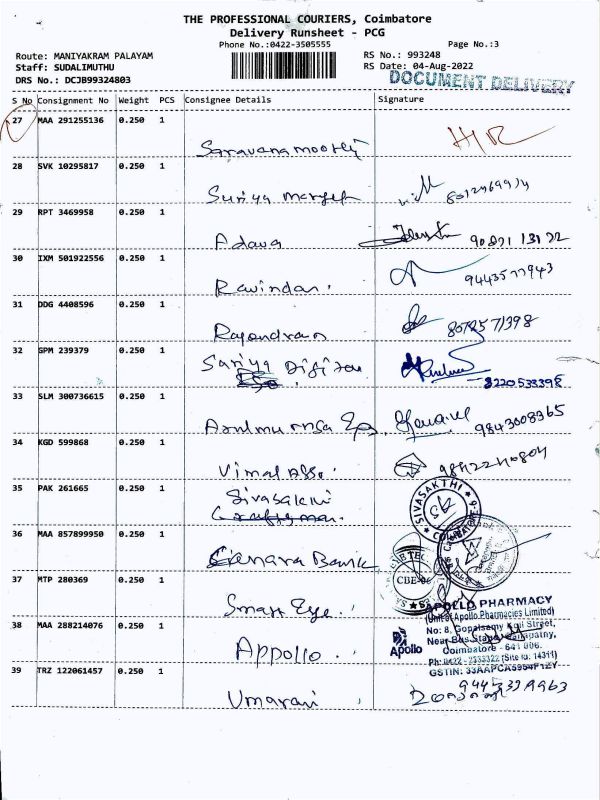 THE PROFESSIONAL COURIERS, Coimbatore
Delivery Runsheet - PCG
Phone No.:0422-3505555 Page No.:3
Route: MANIYAKRAM PALAYAM RS No.: 993248
Staff: SUDALIMUTHU RS Date: 04-Aug-2022
DRS No.: DCJB99324803 DOCUMENT DELIVERY
S No Consignment No Weight PCS Consignee Details Signature
27 MAA 291255136 0.250 1
Saravanamoorthy
28 SVK 10295817 0.250 1
Suriya
29 RPT 3469958 0.250 1
30 IXM 501922556 0.250 1
Ravindan. 9443577943
31 DDG 4408596 0.250 1
Rajendran 8072571398
32 GPM 239379 0.250 1
Sariya Digital
8220533398
33 SLM 300736615 0.250 1
9843008365
34 KGD 599868 0.250 1
Vimal Asso.
35 PAK 261665 0.250 1
Sivasakthi
SIVASAKTHI
36 MAA 857899950 0.250 1
Canara Bank
CBE-06
37 MTP 280369 0.250 1
Smart Eye.
38 MAA 288214076 0.250 1
Appollo
Apollo
APOLLO PHARMACY
(Unit of Apollo Pharmacies Limited)
No: 8, Gopalsamy Koil Street,
Near Bus Stand,
Coimbatore - 641 006.
Ph: 0422 - 2333322 (Site Id: 14311)
39 TRZ 122061457 0.250 1
Umarani